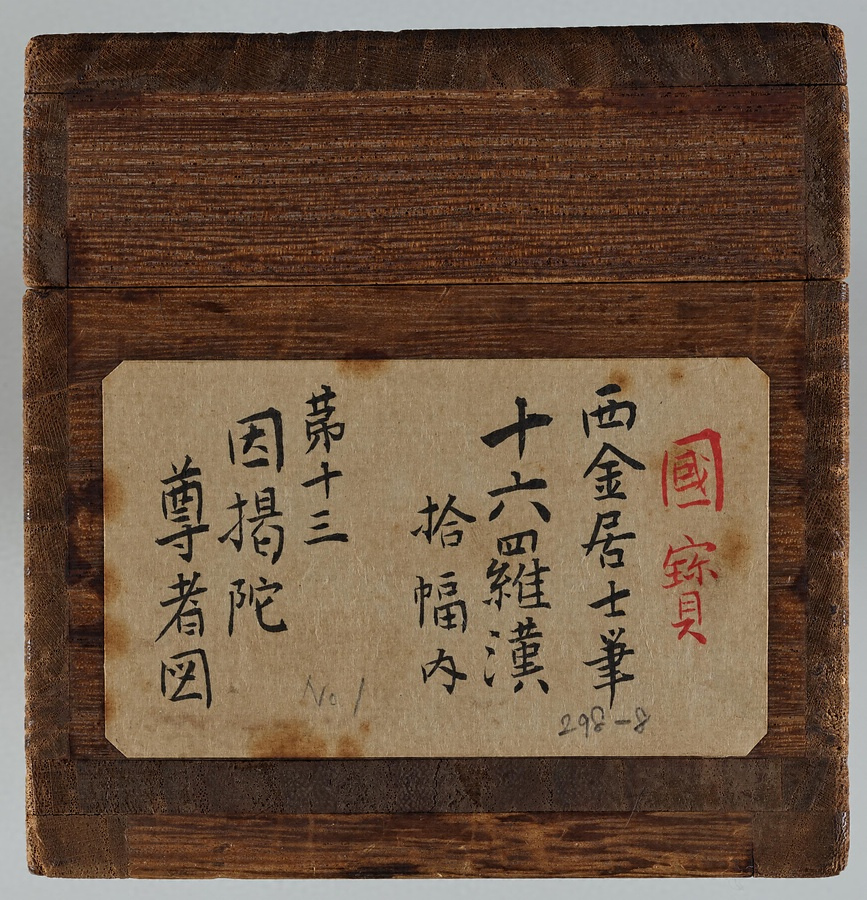 國寳
西金居士筆
十六羅漢
拾幅内
第十三
因掲陀
尊者図
298-8
No 1